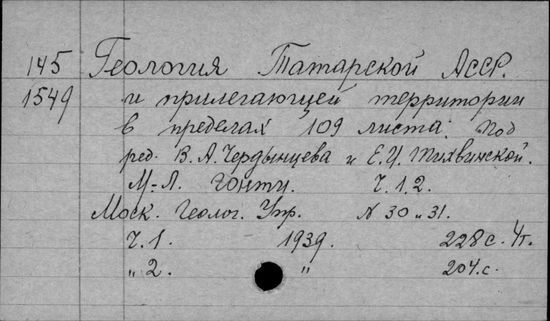 145 Геология Татарской АССР.
1549 и прилегающей территории
в пределах 109 листа. Под
ред. В. А. Чердынцева и Е. И. Тихвинской.
М-Л. ГОНТИ. Ч. 1. 2.
Моск. Геолог. Упр. N 30 и 31.
Ч. 1. 1939. 228 с. 4т.
„ 2. „ 204. с.